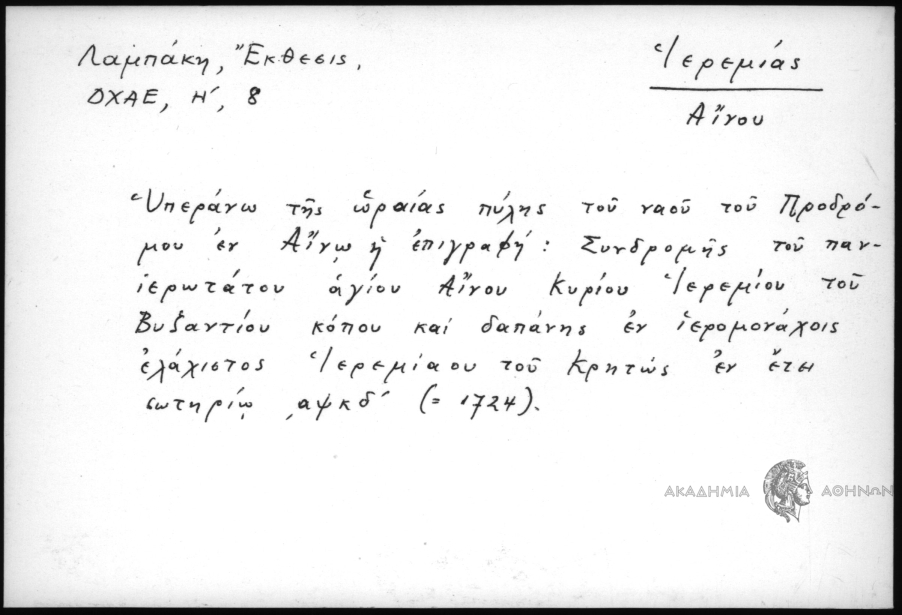 Λαμπάκη, Ἔκθεσις,
ΔΧΑΕ, Η΄, 8
Ἱερεμίας
Αἴνου
Ὑπεράνω τῆς ὡραίας πύλης τοῦ ναοῦ τοῦ Προδρό-
μου ἐν Αἴνῳ ἡ ἐπιγραφή: Συνδρομῆς τοῦ παν-
ιερωτάτου ἁγίου Αἴνου Κυρίου Ἱερεμίου τοῦ
Βυζαντίου κόπου καί δαπάνης ἐν ἱερομονάχοις
ἐλάχιστος Ἱερεμίαου τοῦ Κρητώς ἐν ἔτει
σωτηρίῳ ͵αψκδ΄ (= 1724).
ΑΚΑΔΗΜΙΑ ΑΘΗΝΩΝ